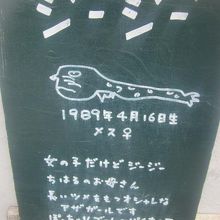 1989年4月16日生
メス♀
女の子だけどジージー
ちはるのお母さん
長いツメをもつオシャレな
アザガールです